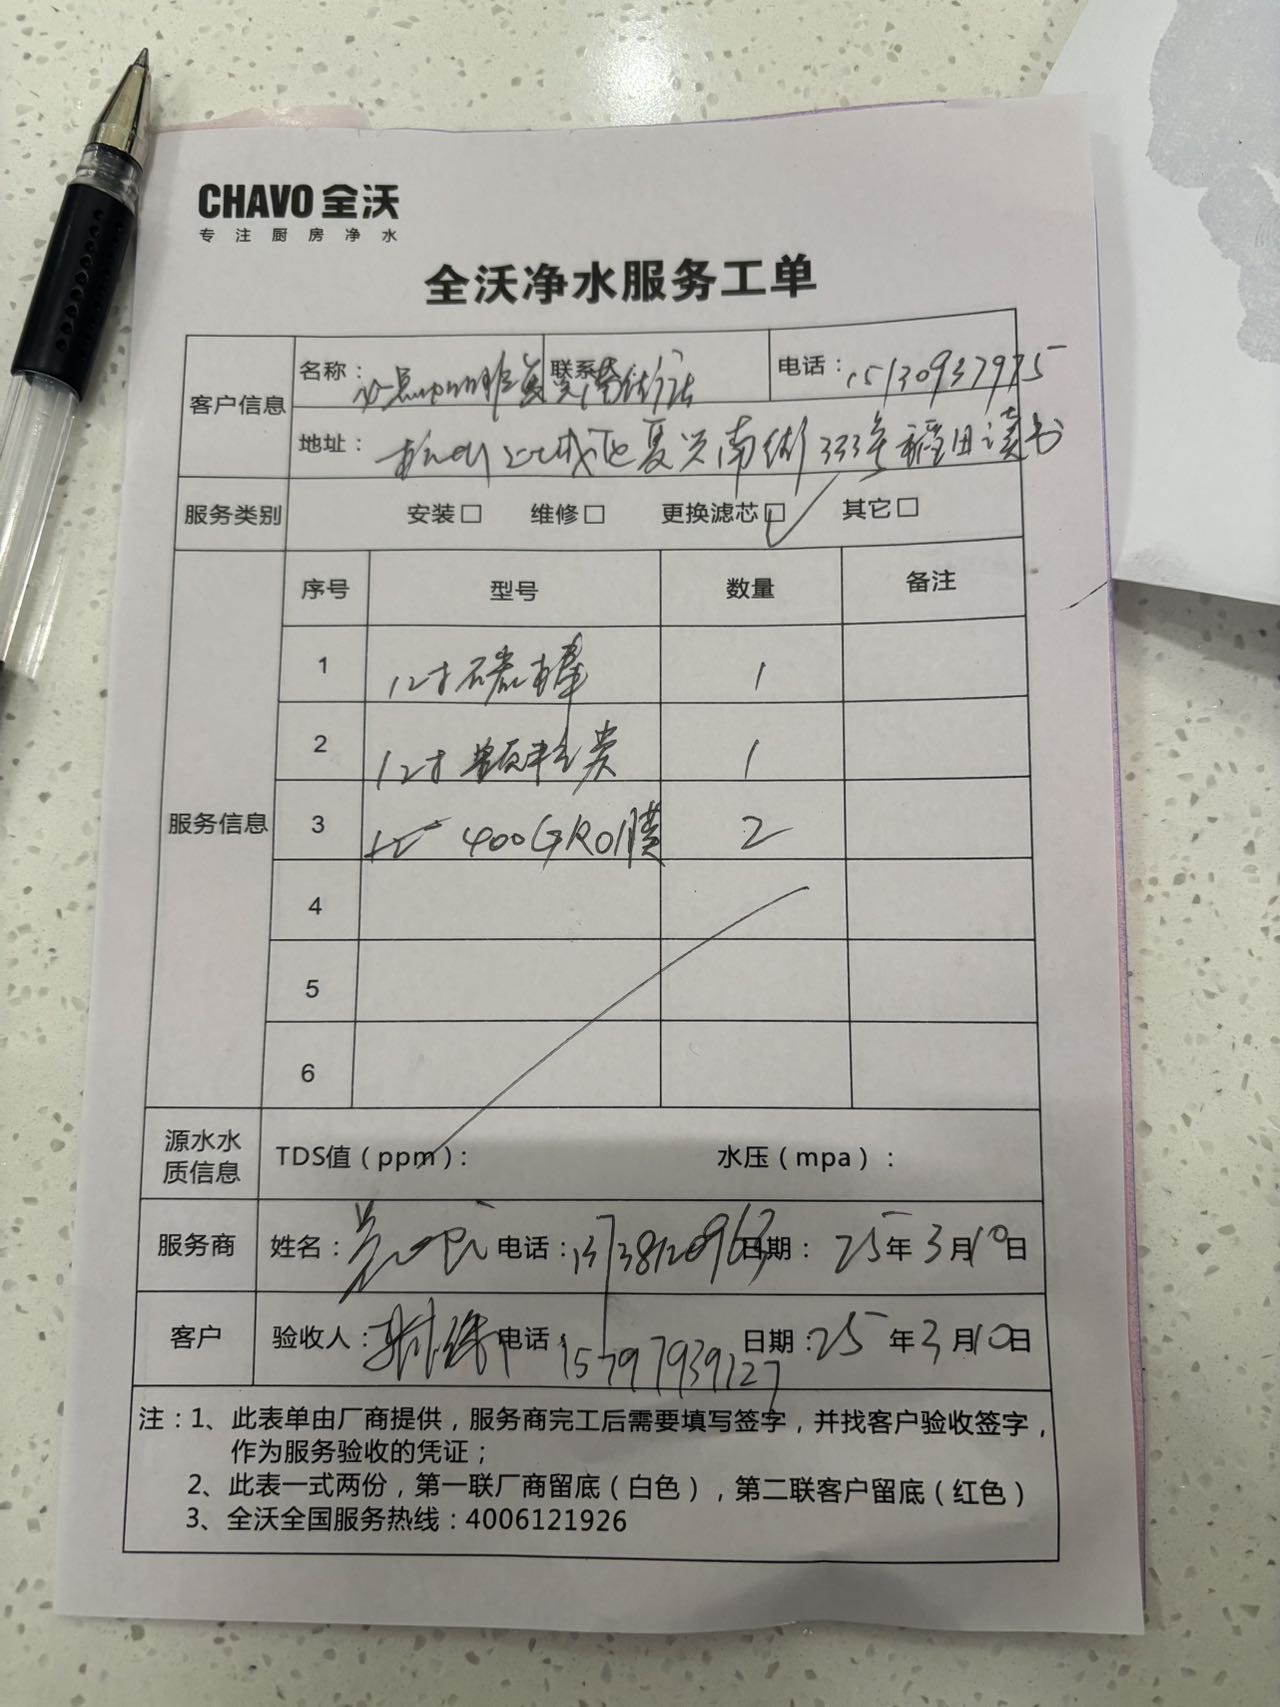 CHAVO 全沃
专注厨房净水
全沃净水服务工单
客户信息 名称： 联系 电话：15130937975
地址： 复兴南街333号稻田读书
服务类别 安装□ 维修□ 更换滤芯☑ 其它□
序号 型号 数量 备注
服务信息
1 12寸 1
2 12寸 1
3 400G RO膜 2
4
5
6
源水水质信息 TDS值（ppm）： 水压（mpa）：
服务商 姓名： 电话：13738120963 日期：25年3月10日
客户 验收人： 电话：15797939127 日期：25年3月10日
注：1、此表单由厂商提供，服务商完工后需要填写签字，并找客户验收签字，
作为服务验收的凭证；
2、此表一式两份，第一联厂商留底（白色），第二联客户留底（红色）
3、全沃全国服务热线：4006121926